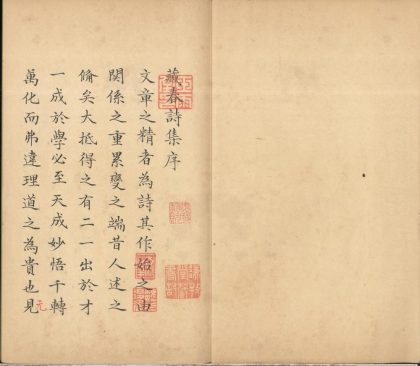 藏春詩集序
文章之精者為詩其作始之由
關係之重累變之端昔人述之
脩矣大抵得之有二一出於才
一成於學必至天成妙悟千轉
萬化而弗違理道之為貴也見
元